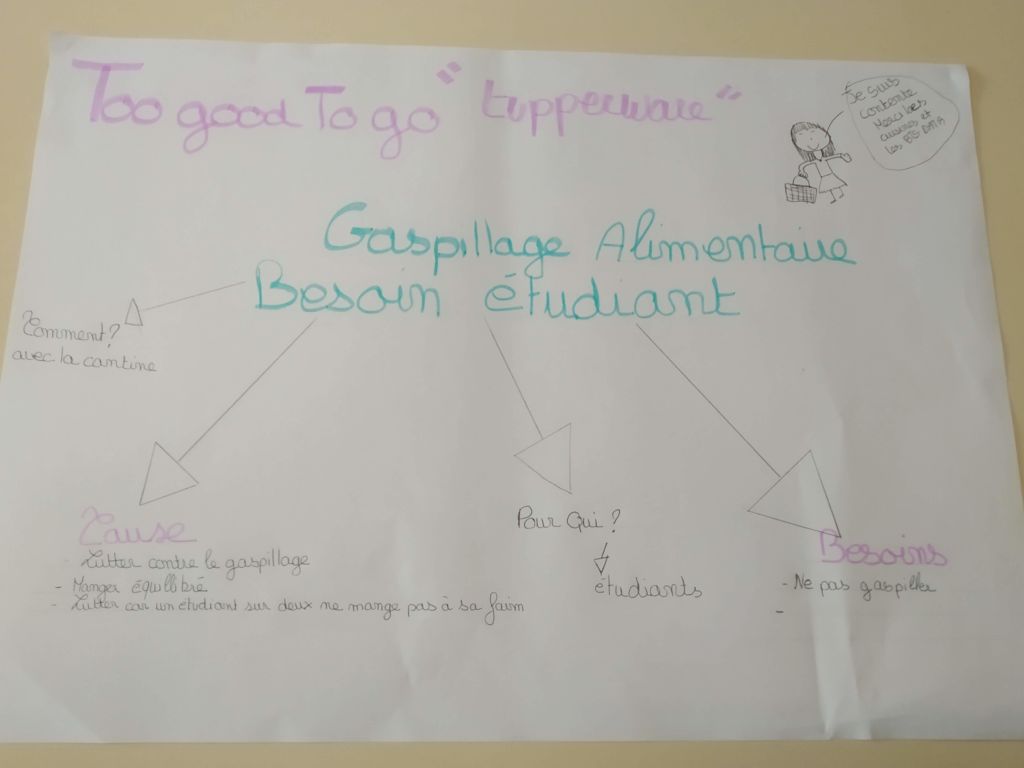 Too good To go "tupperware"
Je suis
contente
Merci les
cuisines et
les BTS DATA
Gaspillage Alimentaire
Besoin étudiant
Comment?
avec la cantine
Cause
Lutter contre le gaspillage
- Manger équilibré
- Lutter car un étudiant sur deux ne mange pas à sa faim
Pour Qui ?
étudiants
Besoins
- Ne pas gaspiller
-